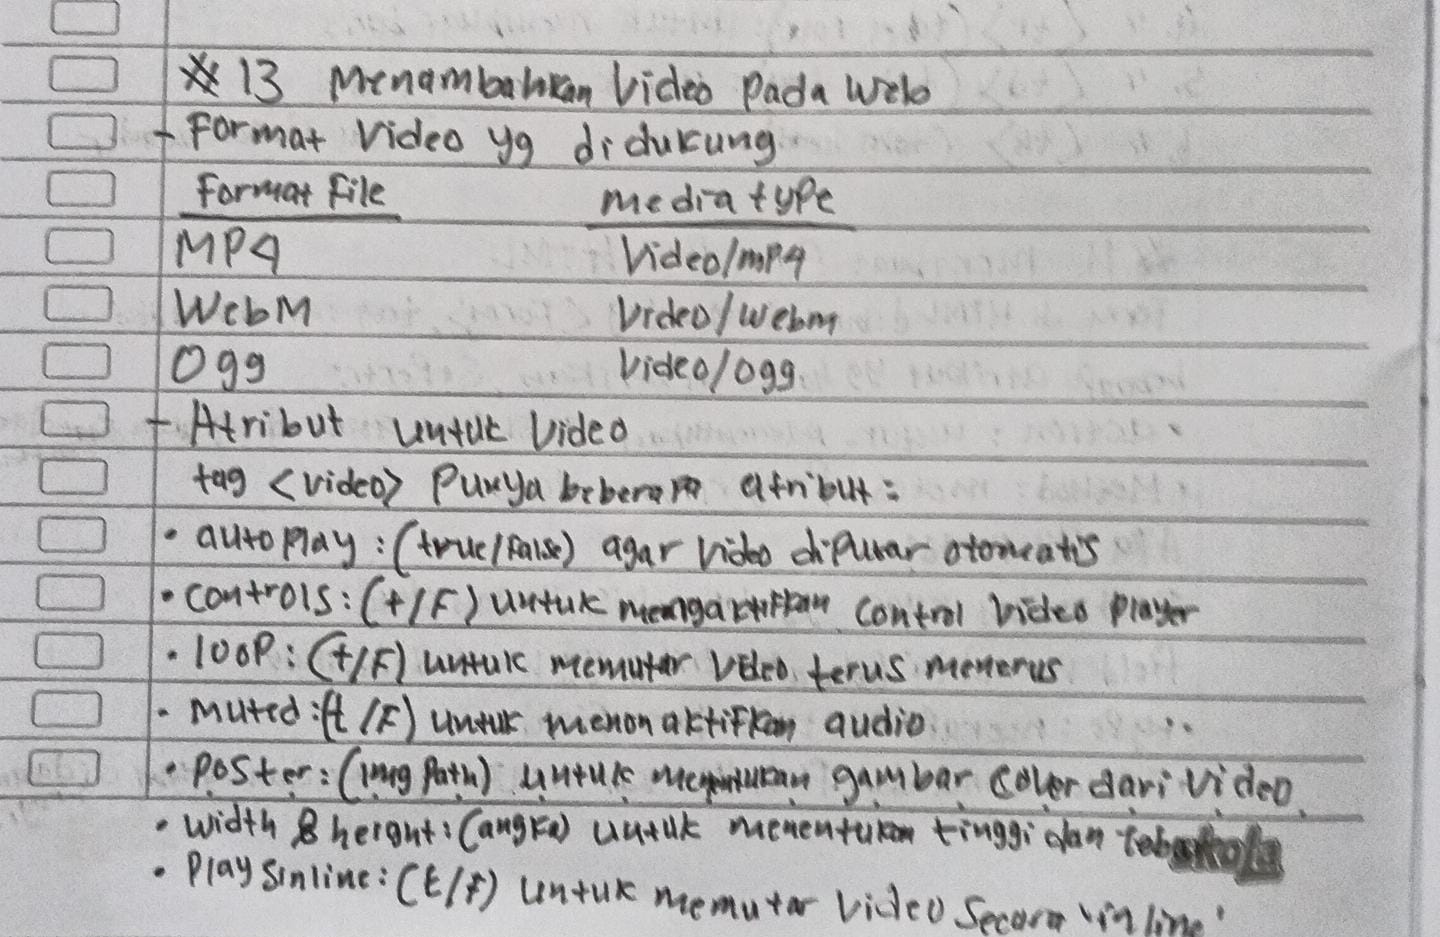 # 13 Menambahkan Video Pada Web
- Format Video yg didukung
Format File media type
MP4 Video/mp4
WebM Video/webm
Ogg Video/ogg.
- Atribut untuk Video
tag <video> Punya beberapa atribut:
• autoplay : (true/False) agar video diputar otomatis
• controls : (t/F) untuk mengaktifkan control video player
• loop : (t/F) untuk memutar video terus menerus
• muted : (t/F) untuk menonaktifkan audio
• poster : (img path) untuk menentukan gambar cover dari video.
• width & height : (angka) untuk menentukan tinggi dan
• Playsinline : (t/f) untuk memutar video secara 'inline'